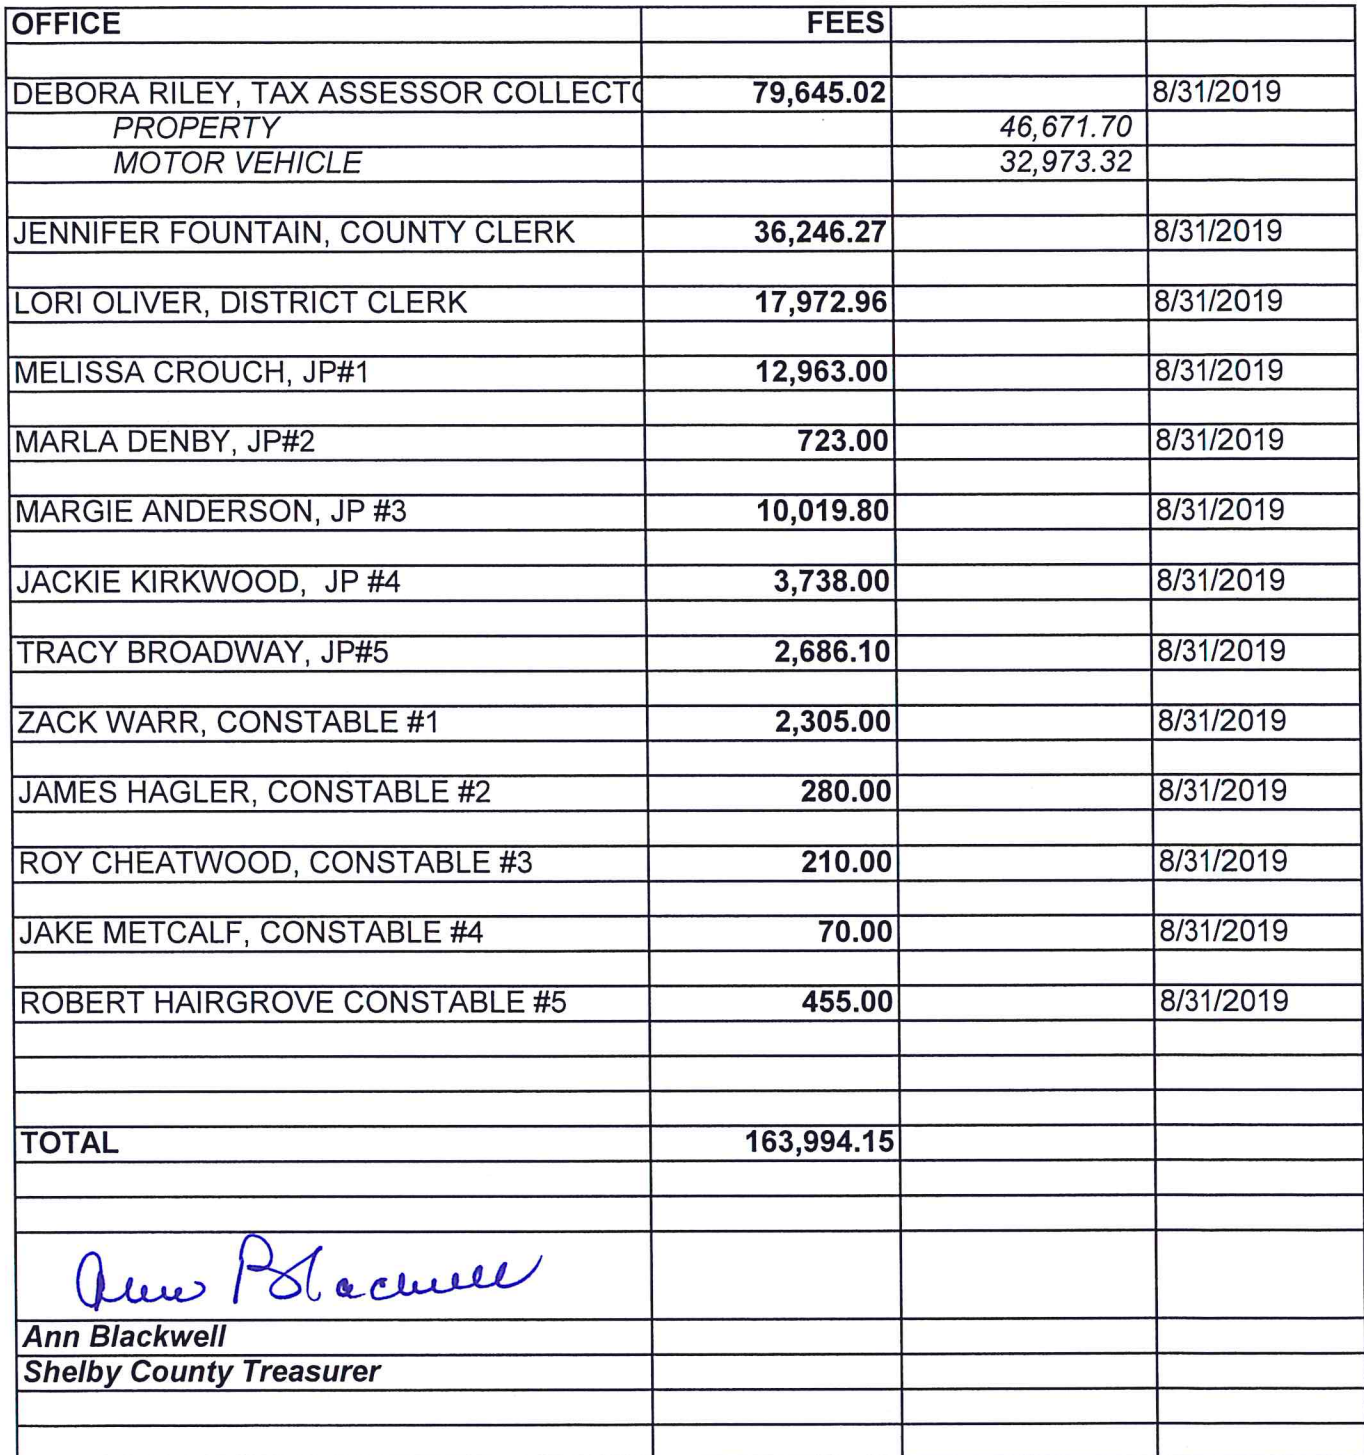 OFFICE FEES
DEBORA RILEY, TAX ASSESSOR COLLECTO 79,645.02 8/31/2019
PROPERTY 46,671.70
MOTOR VEHICLE 32,973.32
JENNIFER FOUNTAIN, COUNTY CLERK 36,246.27 8/31/2019
LORI OLIVER, DISTRICT CLERK 17,972.96 8/31/2019
MELISSA CROUCH, JP#1 12,963.00 8/31/2019
MARLA DENBY, JP#2 723.00 8/31/2019
MARGIE ANDERSON, JP #3 10,019.80 8/31/2019
JACKIE KIRKWOOD, JP #4 3,738.00 8/31/2019
TRACY BROADWAY, JP#5 2,686.10 8/31/2019
ZACK WARR, CONSTABLE #1 2,305.00 8/31/2019
JAMES HAGLER, CONSTABLE #2 280.00 8/31/2019
ROY CHEATWOOD, CONSTABLE #3 210.00 8/31/2019
JAKE METCALF, CONSTABLE #4 70.00 8/31/2019
ROBERT HAIRGROVE CONSTABLE #5 455.00 8/31/2019
TOTAL 163,994.15
Ann Blackwell
Ann Blackwell
Shelby County Treasurer